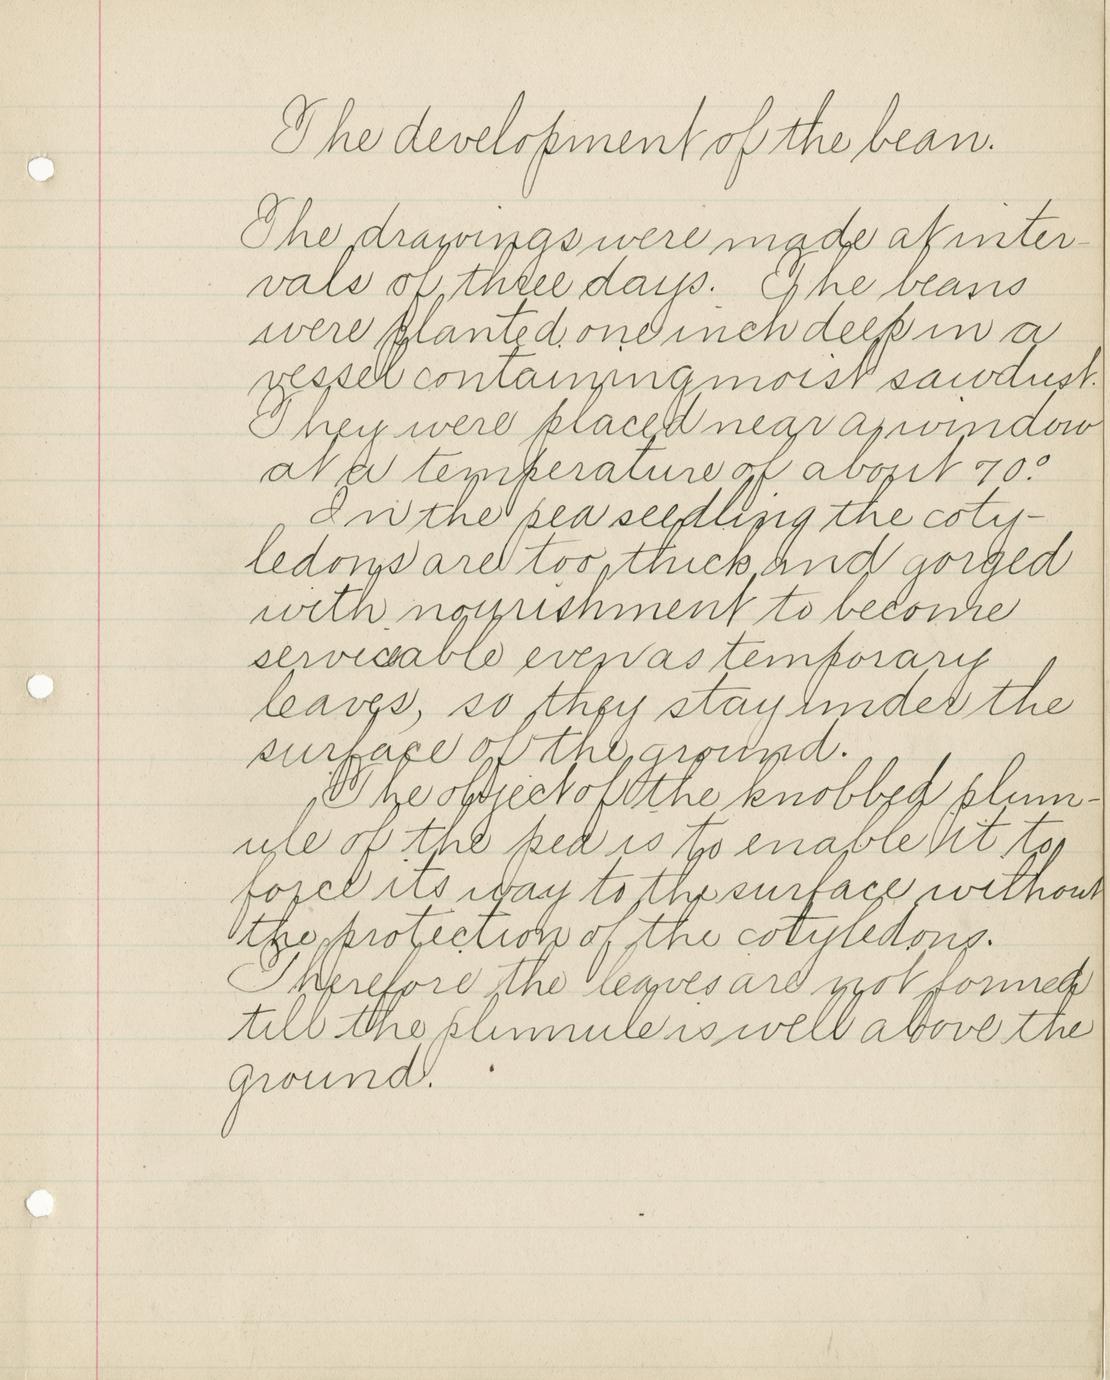 The development of the bean.
The drawings were made at inter-
vals of three days. The beans
were planted one inch deep in a
vessel containing moist sawdust.
They were placed near a window
at a temperature of about 70°
In the pea seedling the coty-
ledons are too thick and gorged
with nourishment to become
servicable even as temporary
leaves, so they stay under the
surface of the ground.
The object of the knobbed plum-
ule of the pea is to enable it to
force its way to the surface without
the protection of the cotyledons.
Therefore the leaves are not formed
till the plumule is well above the
ground.